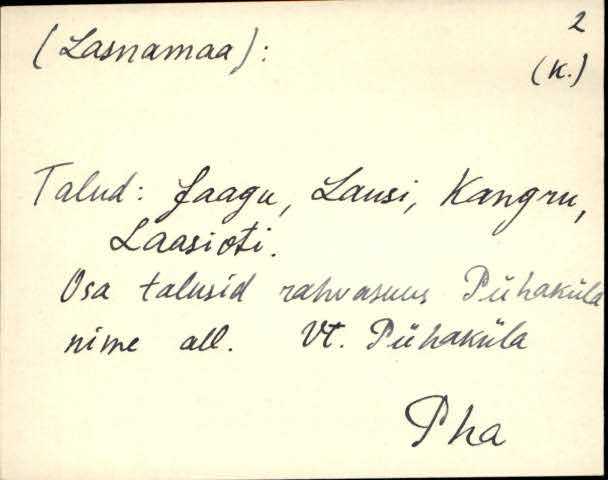 (Lasnamaa): 2
(K.)
Talud: Jaagu, Lausi, Kangru,
Laasioti.
Osa talusid rahvasuus Pühaküla
nime all. Vt. Pühaküla
Pha